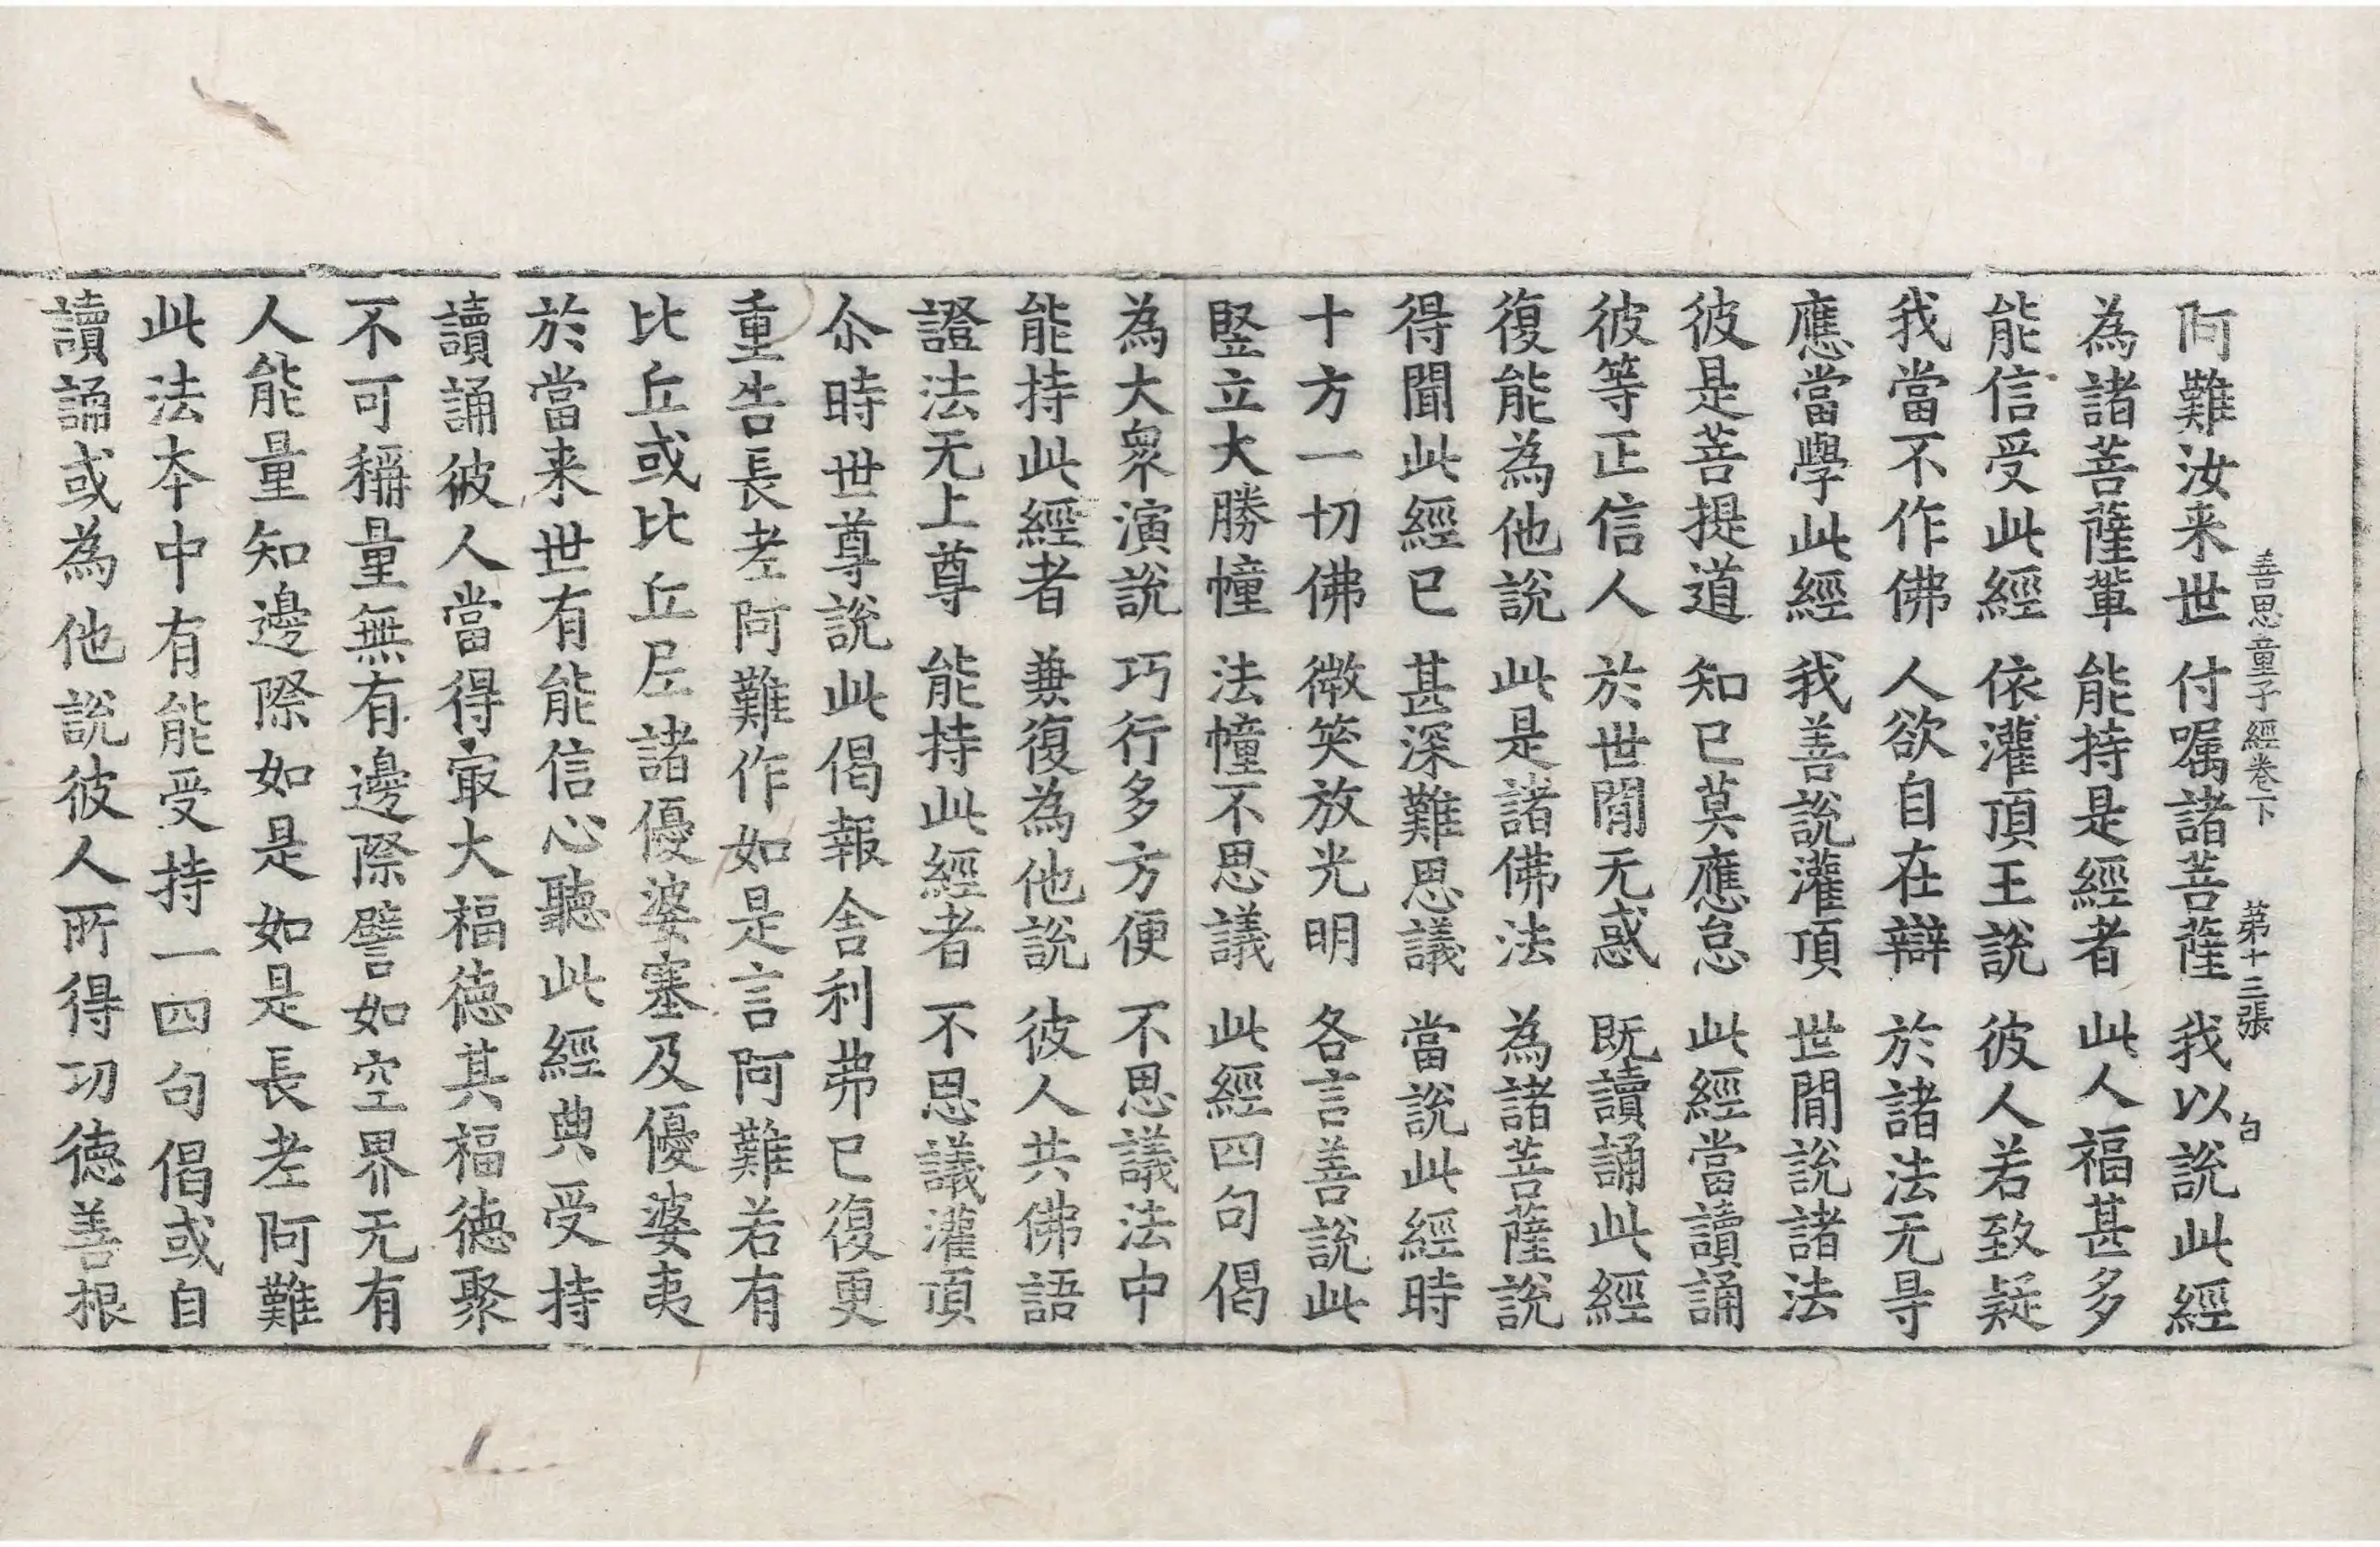 善思童子經卷下 第十三張 白
阿難汝来世 付嘱諸菩薩 我以說此經
為諸菩薩軰 能持是經者 此人福甚多
能信受此經 依灌頂王說 彼人若致疑
我當不作佛 人欲自在辯 於諸法无㝵
應當學此經 我善說灌頂 世間說諸法
彼是菩提道 知已莫應怠 此經當讀誦
彼等正信人 於世間无惑 既讀誦此經
復能為他說 此是諸佛法 為諸菩薩說
得聞此經已 甚深難思議 當說此經時
十方一切佛 微笑放光明 各言善說此
竪立大勝幢 法幢不思議 此經四句偈
為大衆演說 巧行多方便 不思議法中
能持此經者 兼復為他說 彼人共佛語
證法无上尊 能持此經者 不思議灌頂
尒時世尊說此偈報舎利弗已復更
重告長老阿難作如是言阿難若有
比丘或比丘尼諸優婆塞及優婆夷
於當来世有能信心聽此經典受持
讀誦彼人當得㝡大福德其福德聚
不可稱量無有邊際譬如空界无有
人能量知邊際如是如是長老阿難
此法夲中有能受持一四句偈或自
讀誦或為他說彼人所得功德善根